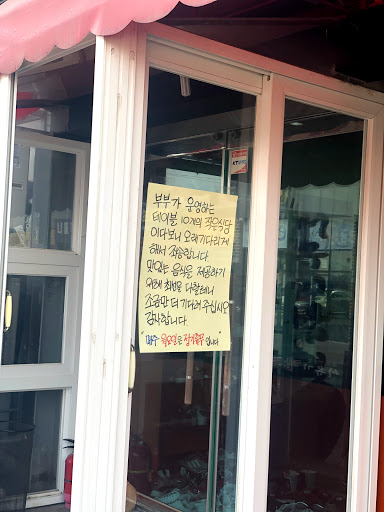 부부가 운영하는
테이블 10개의 작은식당
이다보니 오래기다리게
해서 죄송합니다.
맛있는 음식을 제공하기
위해 최선을 다할테니
조금만 더 기다려 주십시오
감사합니다.
매주 월요일은 정기휴무 입니다
KT